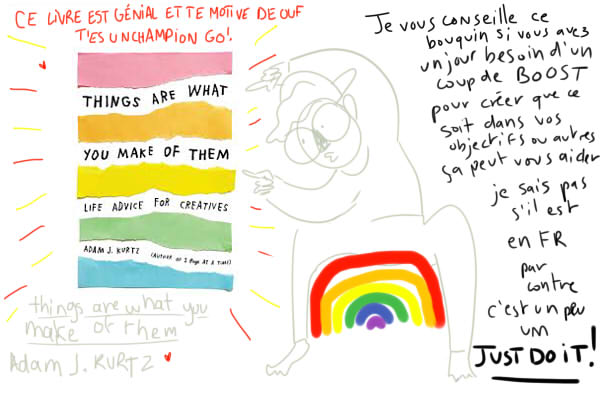 CE LIVRE EST GÉNIAL ET TE MOTIVE DE OUF
T'ES UN CHAMPION GO!
THINGS ARE WHAT
YOU MAKE OF THEM
LIFE ADVICE FOR CREATIVES
ADAM J. KURTZ (AUTHOR OF 1 PAGE AT A TIME)
things are what you
make of them
Adam J. KURTZ
Je vous conseille ce
bouquin si vous avez
un jour besoin d'un
coup de BOOST
pour créer que ce
soit dans vos
objectifs ou autres
ça peut vous aider
je sais pas
s'il est
en FR
par
contre
c'est un peu
UM
JUST DO IT!